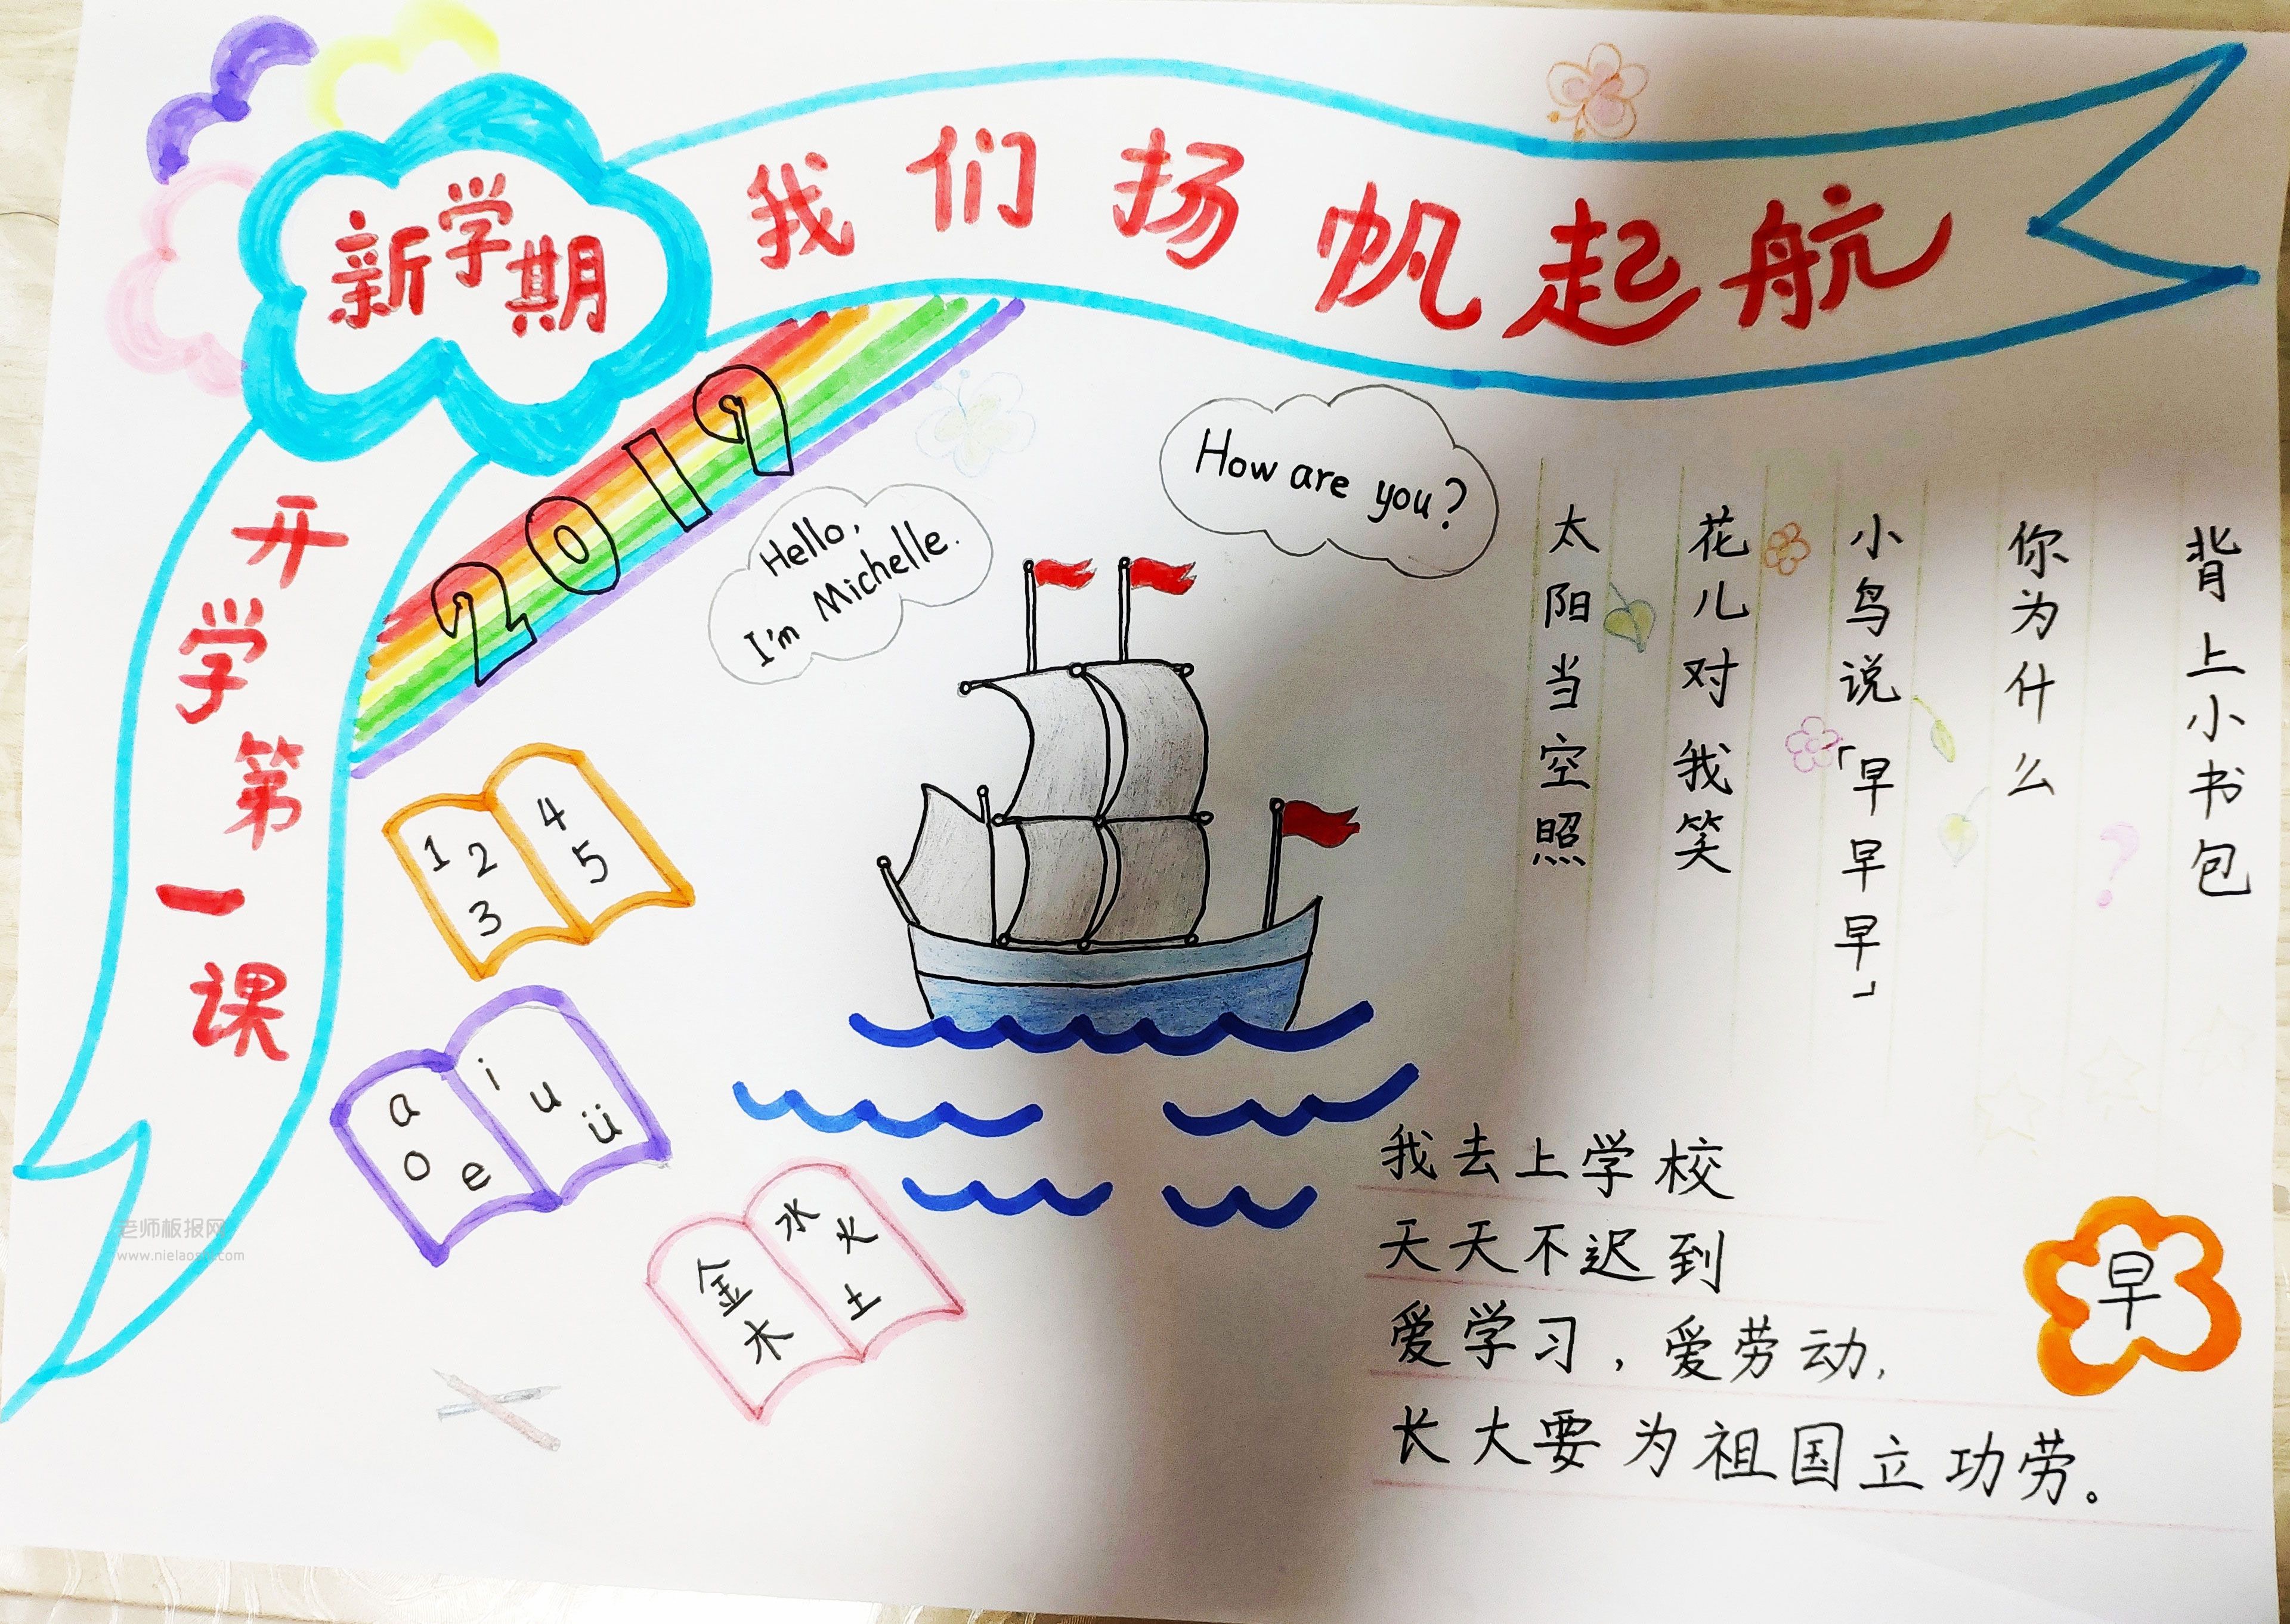 新学期
我们扬帆起航
开学第一课
2019
Hello,
I'm Michelle.
How are you?
1 2 3
4 5
a o e
i u ü
金木
水火土
太阳当空照
花儿对我笑
小鸟说「早早早」
你为什么
背上小书包
?
我去上学校
天天不迟到
爱学习，爱劳动，
长大要为祖国立功劳。
早
老师板报网